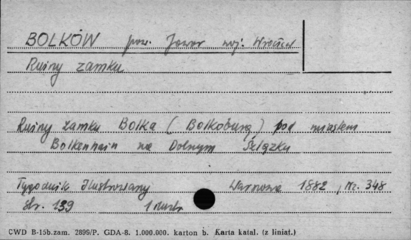 BOLKÓW pow. Jawor woj. Wrocław
Ruiny zamku
Ruiny zamku Bolka (Bolkoburg) pod miastem
Bolkenhain na Dolnym Śląsku
Tygodnik Ilustrowany Warszawa 1882, Nr. 348
str. 139 1 ilustr.
CWD B-15b.zam. 2899/P. GDA-8. 1.000.000. karton b. Karta katal. (z liniat.)